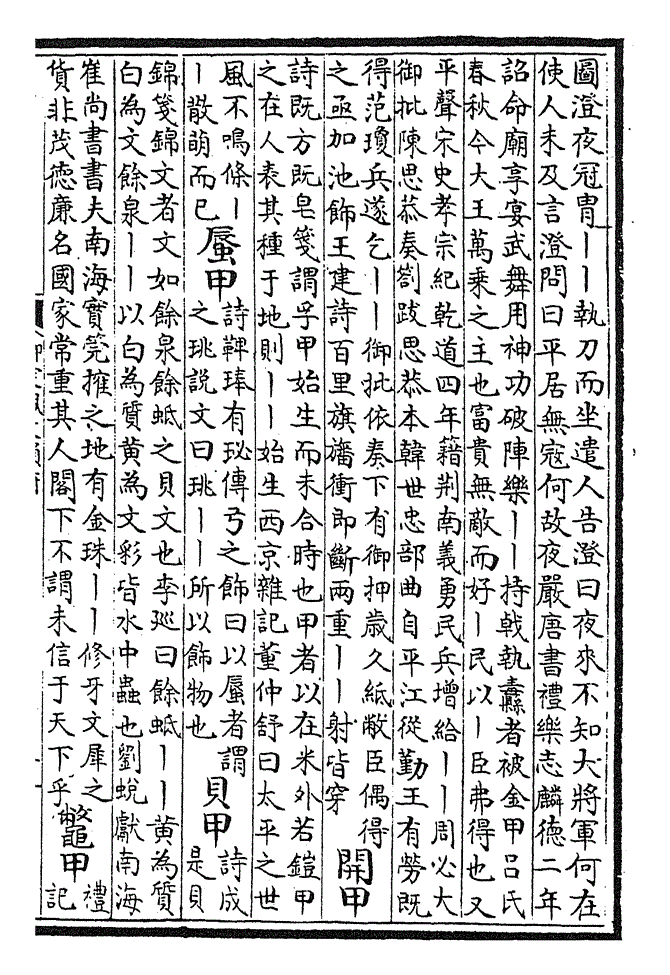 圖澄夜冠冑｜｜執刀而坐遣人告澄曰夜來不知大將軍何在
使人未及言澄問曰平居無寇何故夜嚴唐書禮樂志麟德二年
詔命廟享宴武舞用神功破陣樂｜｜持戟執纛者被金甲呂氏
春秋今大王萬乗之主也富貴無敵而好｜民以｜臣弗得也又
平聲宋史孝宗紀乾道四年籍荆南義勇民兵增給｜｜周必大
御批陳思恭奏劄跋思恭本韓世忠部曲自平江從勤王有勞既
得范瓊兵遂乞｜｜御批依奏下有御押歲久紙敝臣偶得
之亟加池飾王建詩百里旗旛衝即斷兩重｜｜射皆穿
開甲
詩既方既皁箋謂孚甲始生而未合時也甲者以在米外若鎧甲
之在人表其種于地則｜｜始生西京雜記董仲舒曰太平之世
風不鳴條｜
｜散萌而已
蜃甲
詩鞞琫有珌傳弓之飾曰以蜃者謂
之珧說文曰珧｜｜所以飾物也
貝甲
詩成
是貝
錦箋錦文者文如餘泉餘蚳之貝文也李巡曰餘蚳｜｜黄為質
白為文餘泉｜｜以白為質黄為文彩皆水中蟲也劉蛻獻南海
崔尚書書夫南海實筦擁之地有金珠｜｜修牙文犀之
貨非茂德廉名國家常重其人閣下不謂未信于天下乎
鼈甲
禮
記